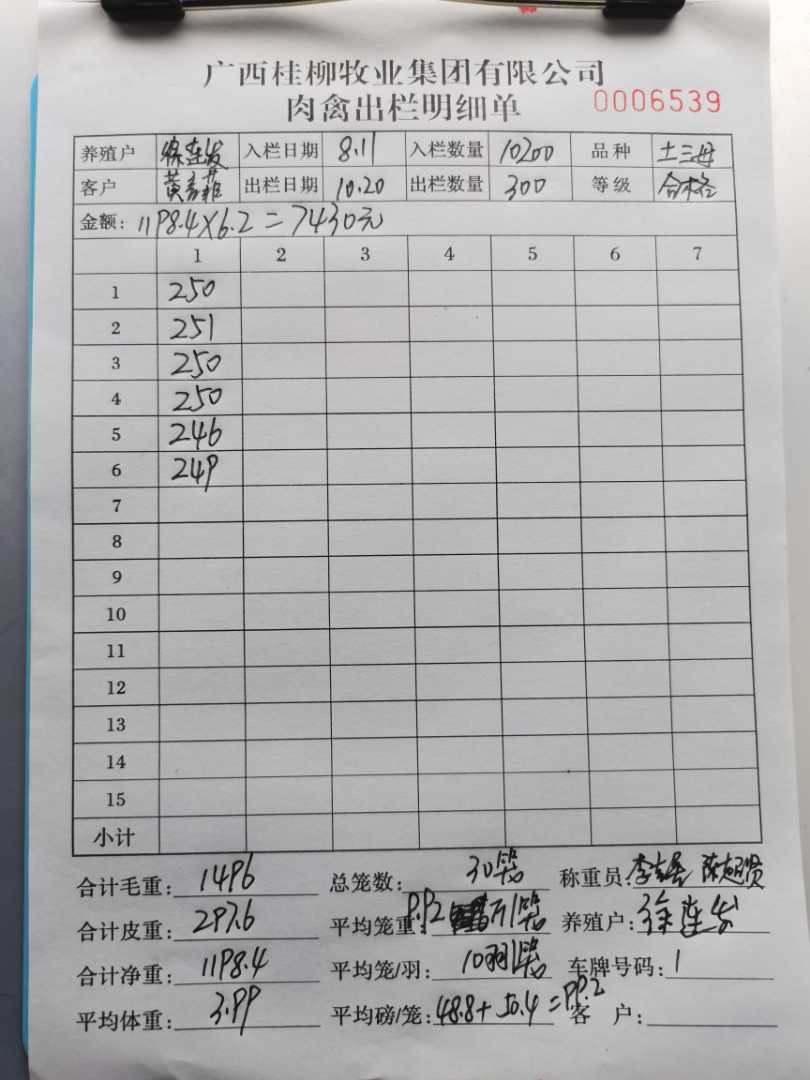 广西桂柳牧业集团有限公司
肉禽出栏明细单 0006539
养殖户 徐连发 入栏日期 8.11 入栏数量 10200 品种 土三母
客户 出栏日期 10.20 出栏数量 300 等级 合格
金额: 1198.4×6.2=7430元
1 2 3 4 5 6 7
1 250
2 251
3 250
4 250
5 246
6 249
7
8
9
10
11
12
13
14
15
小计
合计毛重: 1496 总笼数: 30 称重员:
合计皮重: 297.6 平均笼重: 9.92 养殖户: 徐连发
合计净重: 1198.4 平均笼/羽: 10羽 车牌号码: 1
平均体重: 3.99 平均磅/笼: 48.8+50.4=99.2 客户: